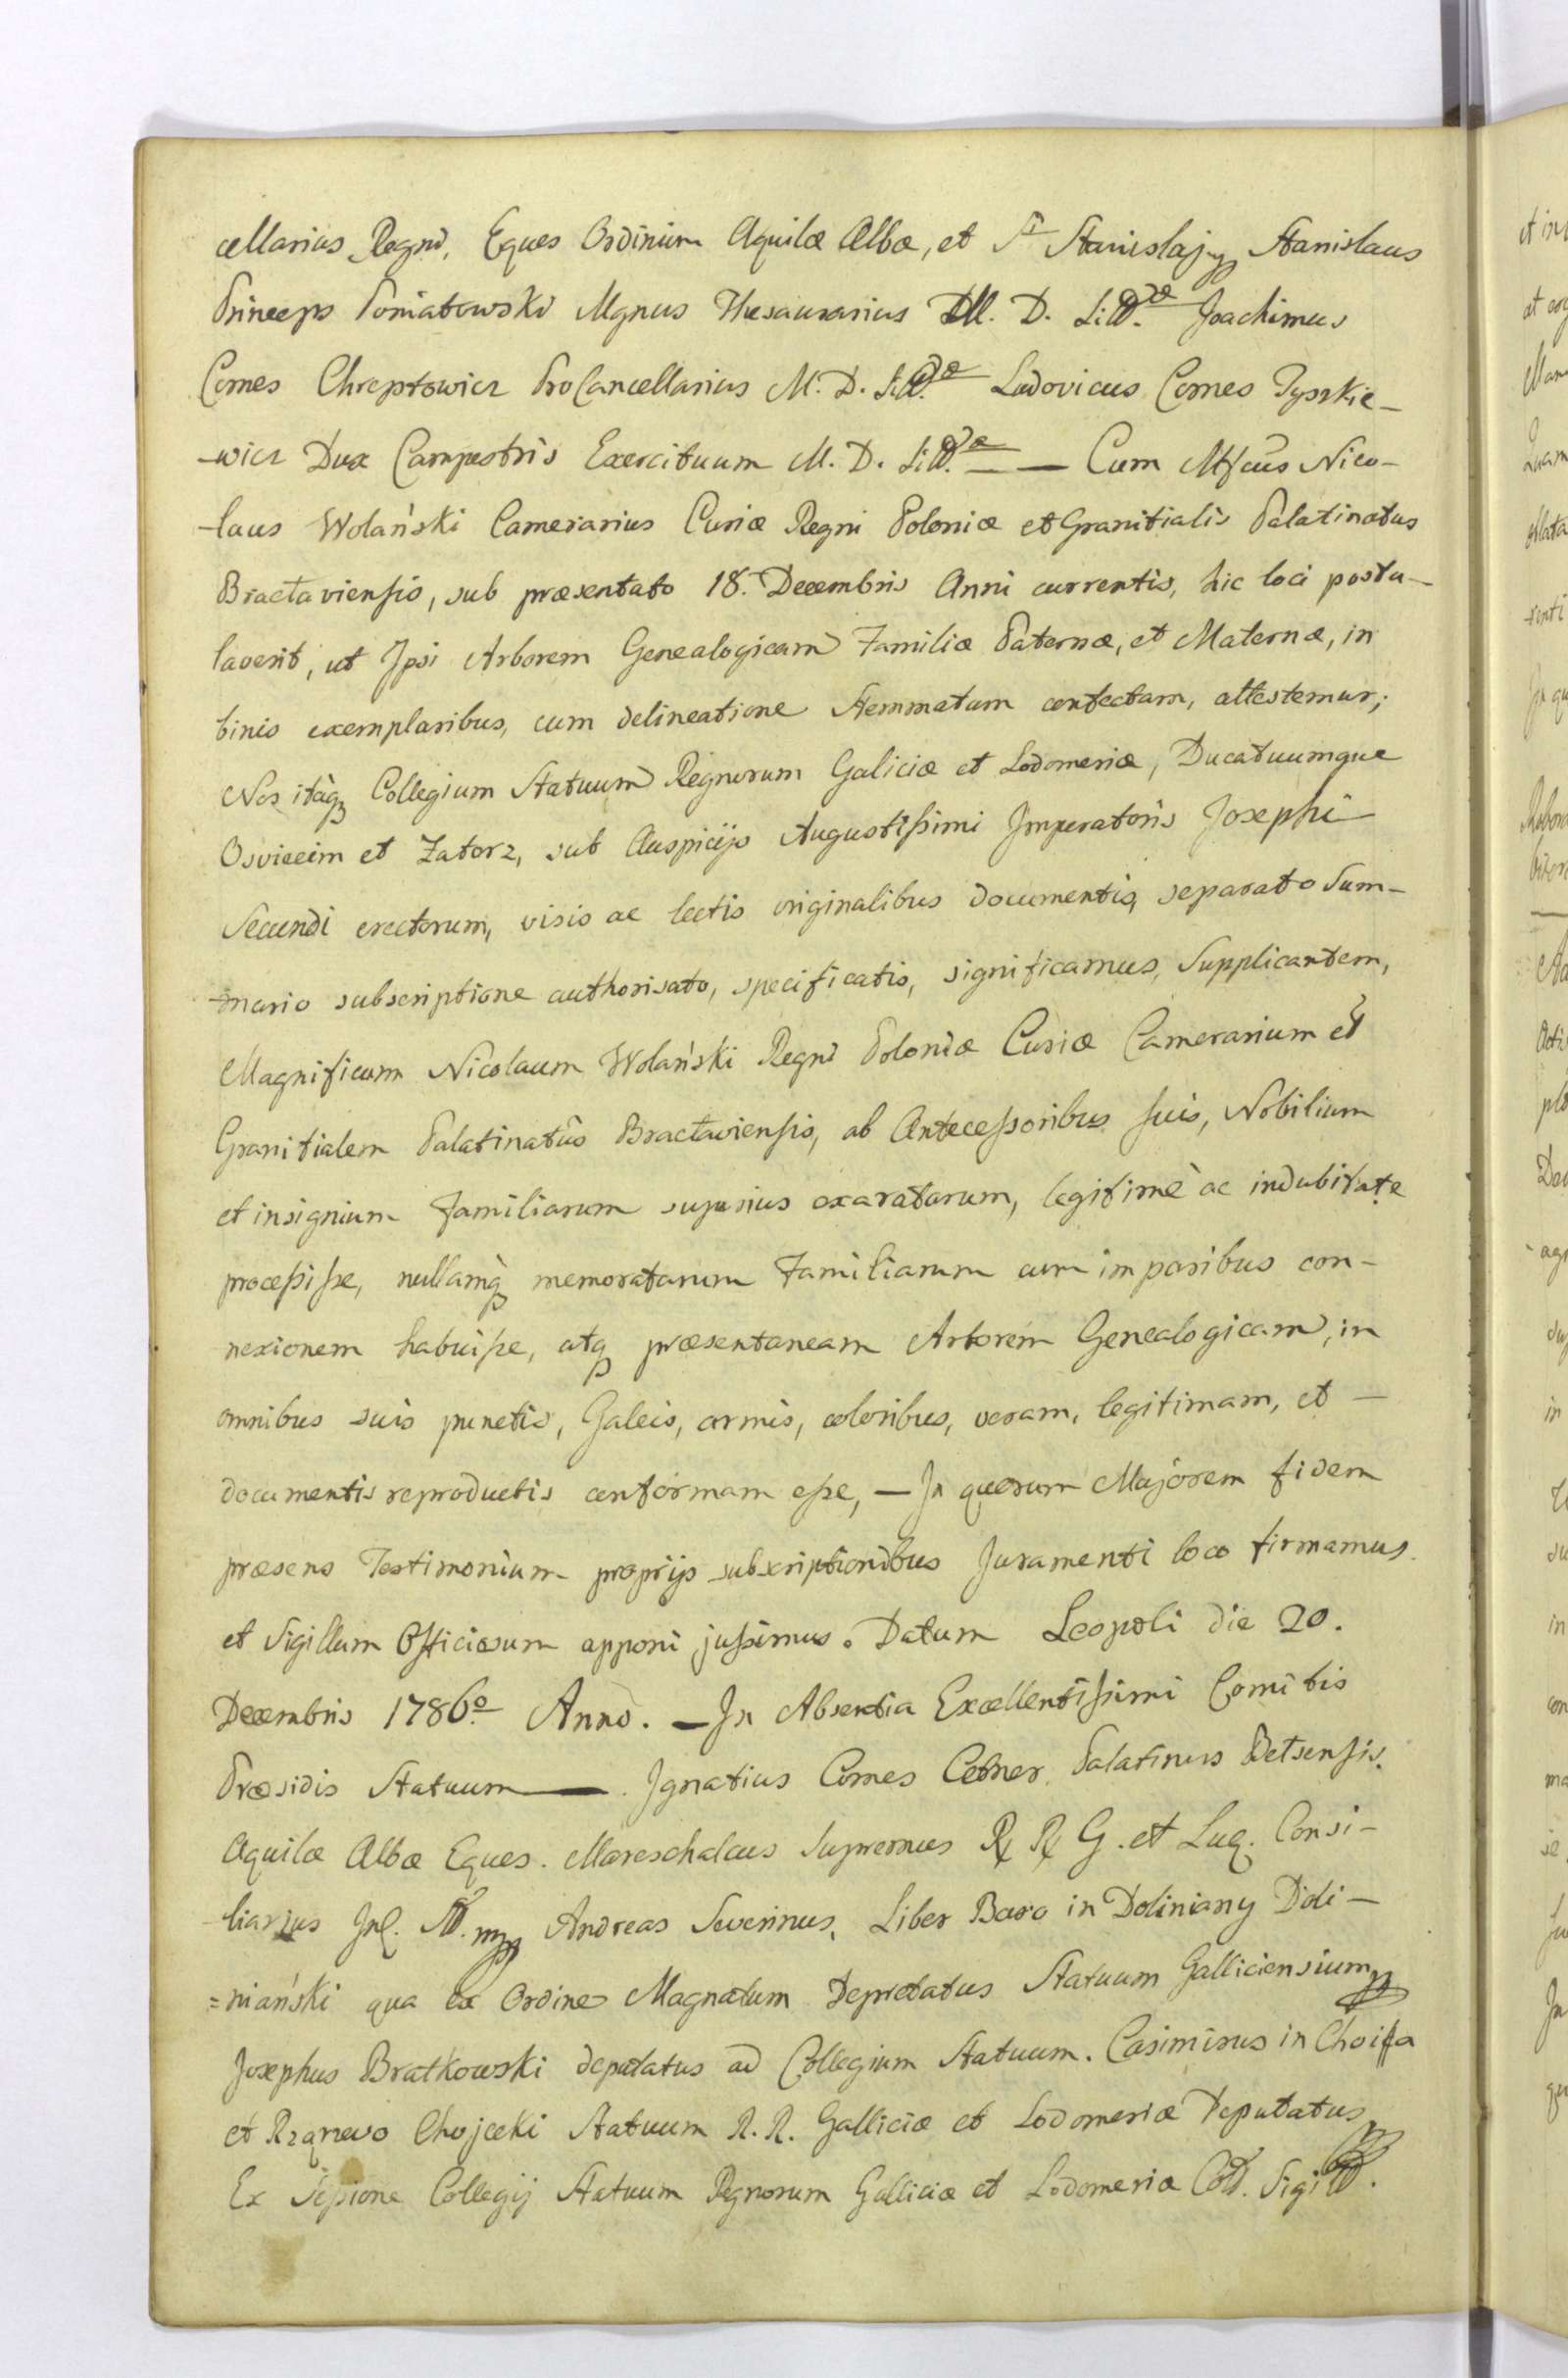 cellarius Regni, Eques Ordinium Aquilæ Albæ, et Sti Stanislaj Stanislaus
Princeps Poniatowski Mgnus Thesaurarius M. D. Litt.væ Joachimus
Comes Chreptowicz ProCancellarius M. D. Litt.væ Ludovicus Comes Tyszkie-
-wicz Dux Campestris Exercituum M. D. Litt.væ — Cum Mfcus Nico-
-laus Wolański Camerarius Curiæ Regni Poloniæ et Granitialis Palatinatus
Bractaviensis, sub præsentato 18. Decembris Anni currentis, hic loci postu-
laverit, ut Ipsi Arborem Genealogicam Familiæ Paternæ, et Maternæ, in
binis exemplaribus, cum delineatione Stemmatum confectam, attestemur;
Nos itàq Collegium Statuum Regnorum Galiciæ et Lodomeriæ, Ducatuumque
Osvieeim et Zatorz, sub Auspicijs Augustissimi Imperatoris Josephi
Secundi erectorum, visis ac lectis originalibus documentis, separato Sum-
-mario subscriptione authorisato, specificatis, significamus, Supplicantem,
Magnificum Nicolaum Wolański Regni Poloniæ Curiæ Camerarium et
Granitialem Palatinatûs Bractaviensis, ab Antecessoribus suis, Nobilium
et insignium Familiarum superius exaratarum, legitimè ac indubitate
processisse, nullamq̀ memoratarum Familiarum cum imparibus con-
nexionem habuisse, atq præsentaneam Arborem Genealogicam, in
omnibus suis punctis, Galeis, armis, coloribus, veram, legitimam, et —
documentis reproductis conformam esse, — In quorum Majorem fidem
præsens Testimonium proprijs subscriptionibus Juramenti loco firmamus
et Sigillum Officiosum apponi jussimus. Datum Leopoli die 20.
Decembris 1786º Anno. — In Absentia Excellentissimi Comitis
Præsidis Statuum — Ignatius Comes Cetner Palatinus Belsensis.
Aquilæ Albæ Eques. Mareschalcus Supremus R R G. et Luq. Consi-
liarius Andreas Severinus, Liber Baro in Doliniany Doli-
=niański qua ex Ordine Magnatum Deputatus Statuum Galliciensium
Josephus Bratkowski deputatus ad Collegium Statuum. Casimirus in
et Rząnewo Chojecki Statuum R. R. Galliciæ et Lodomeriæ Deputatus
Ex Sessione Collegij Statuum Regnorum Galliciæ et Lodomeriæ